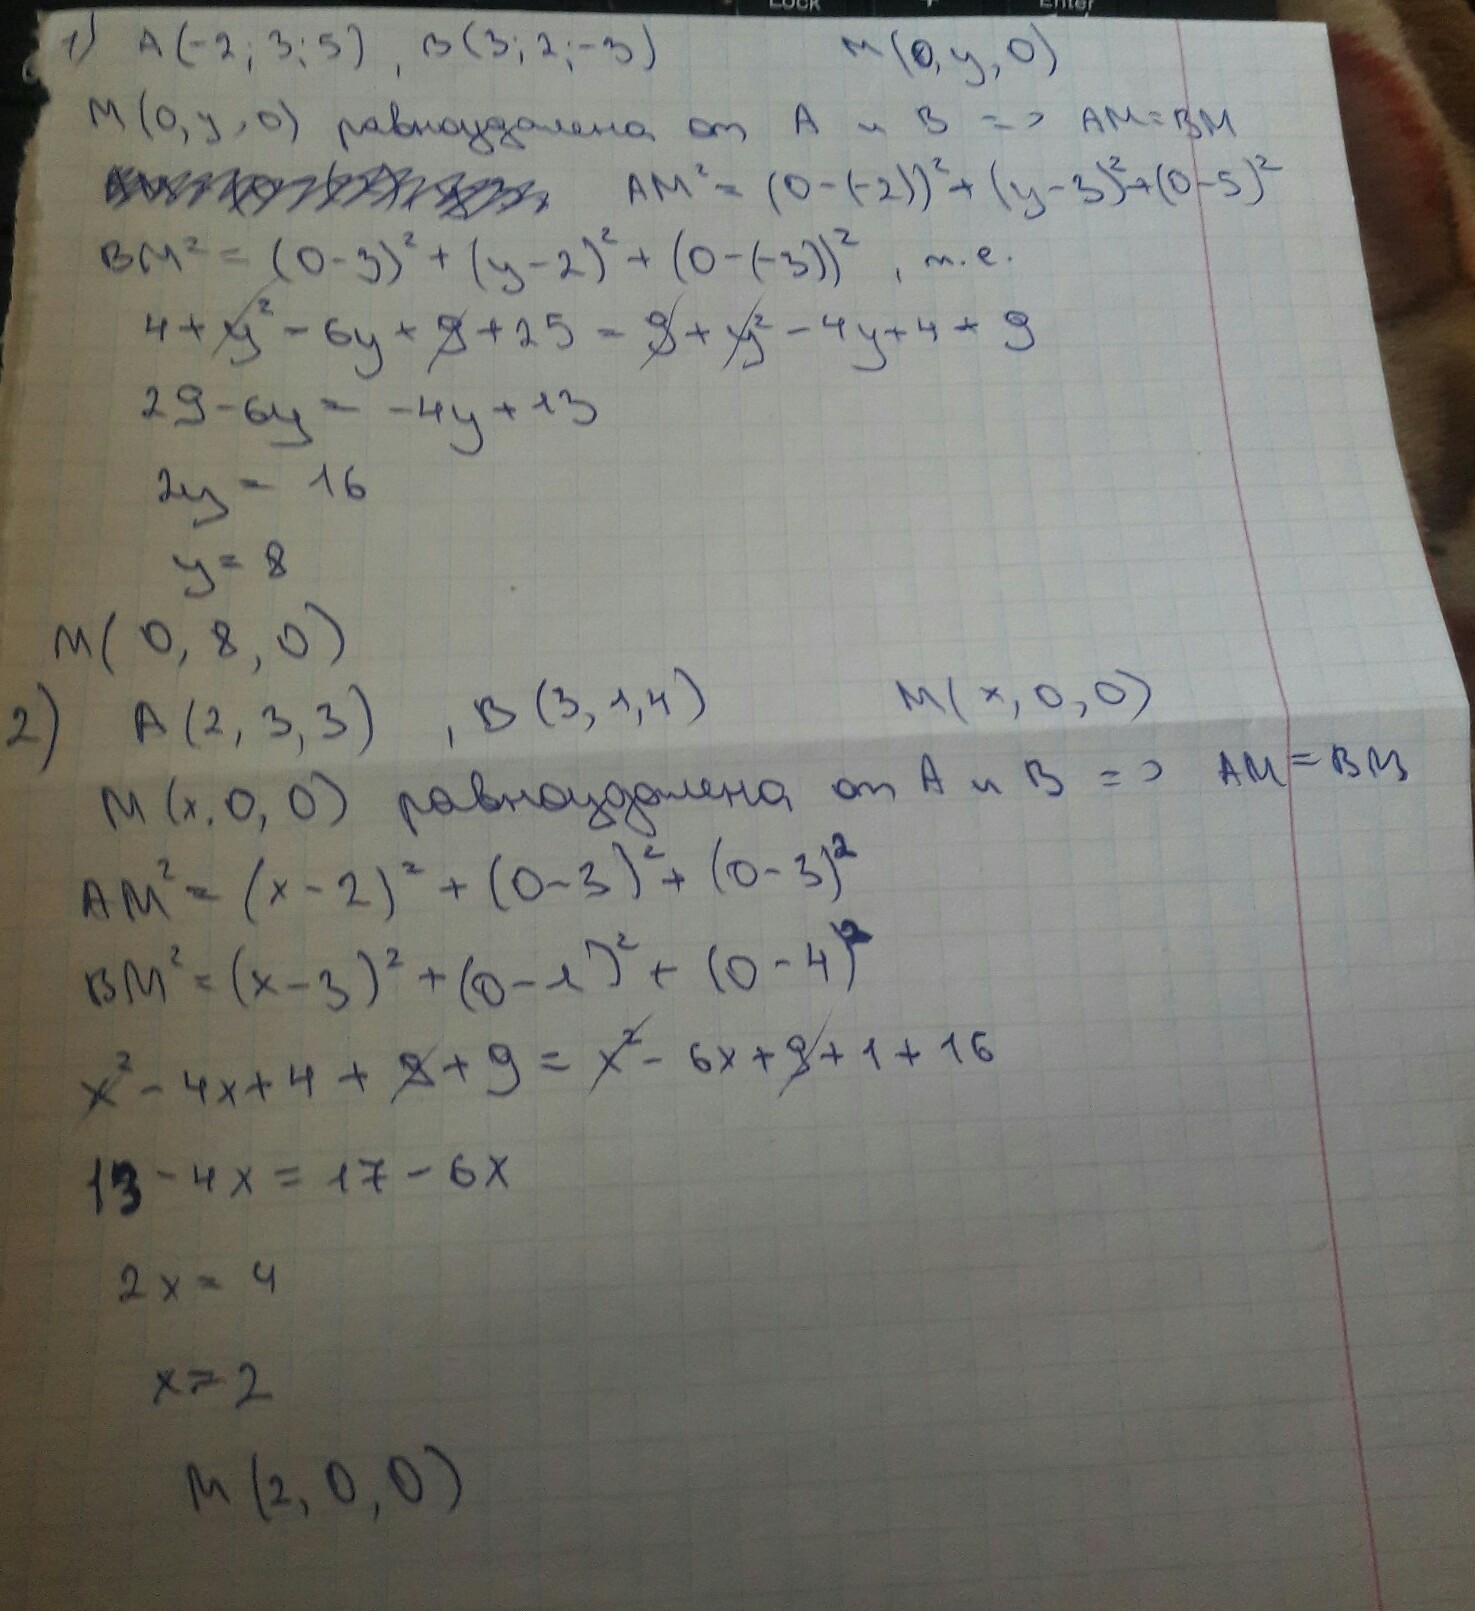 Lock
Enter
1) A(-2; 3; 5), B(3; 2; -3) M(0, y, 0)
M(0, y, 0) равноудалена от A и B => AM=BM
AM² = (0-(-2))² + (y-3)² + (0-5)²
BM² = (0-3)² + (y-2)² + (0-(-3))², т.е.
4 + y² - 6y + 9 + 25 = 9 + y² - 4y + 4 + 9
29 - 6y = -4y + 13
2y = 16
y = 8
M(0, 8, 0)
2) A(2, 3, 3), B(3, 1, 4) M(x, 0, 0)
M(x, 0, 0) равноудалена от A и B => AM = BM
AM² = (x-2)² + (0-3)² + (0-3)²
BM² = (x-3)² + (0-1)² + (0-4)²
x² - 4x + 4 + 9 + 9 = x² - 6x + 9 + 1 + 16
13 - 4x = 17 - 6x
2x = 4
x = 2
M(2, 0, 0)